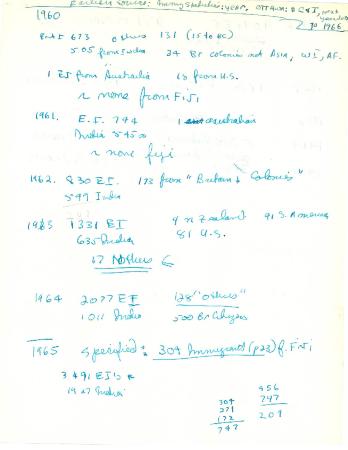 Immig Statistics, year, Ottawa: D C & I,
to 1966
1960
673 others 131 (15 to BC)
505 from India 34 Br Colonies not Asia, W.I, AF.
1 EI from Australia 15 from U.S.
none from Fiji
1961. E.I. 744 1 Australian
India
none fiji
1962. 830 EI. 173 from "Britain & Colonies"
547 India
1963 1331 EI 4 n Zealand 91 S. America
635 India 81 U.S.
17 No Others
1964 2077 EI 128 "others"
1011 India 500 Br Citizens
1965 specified: 304 Immigrants (p23) f. Fiji
3491 EI's
1927 India
304
271
172
747
956
747
209